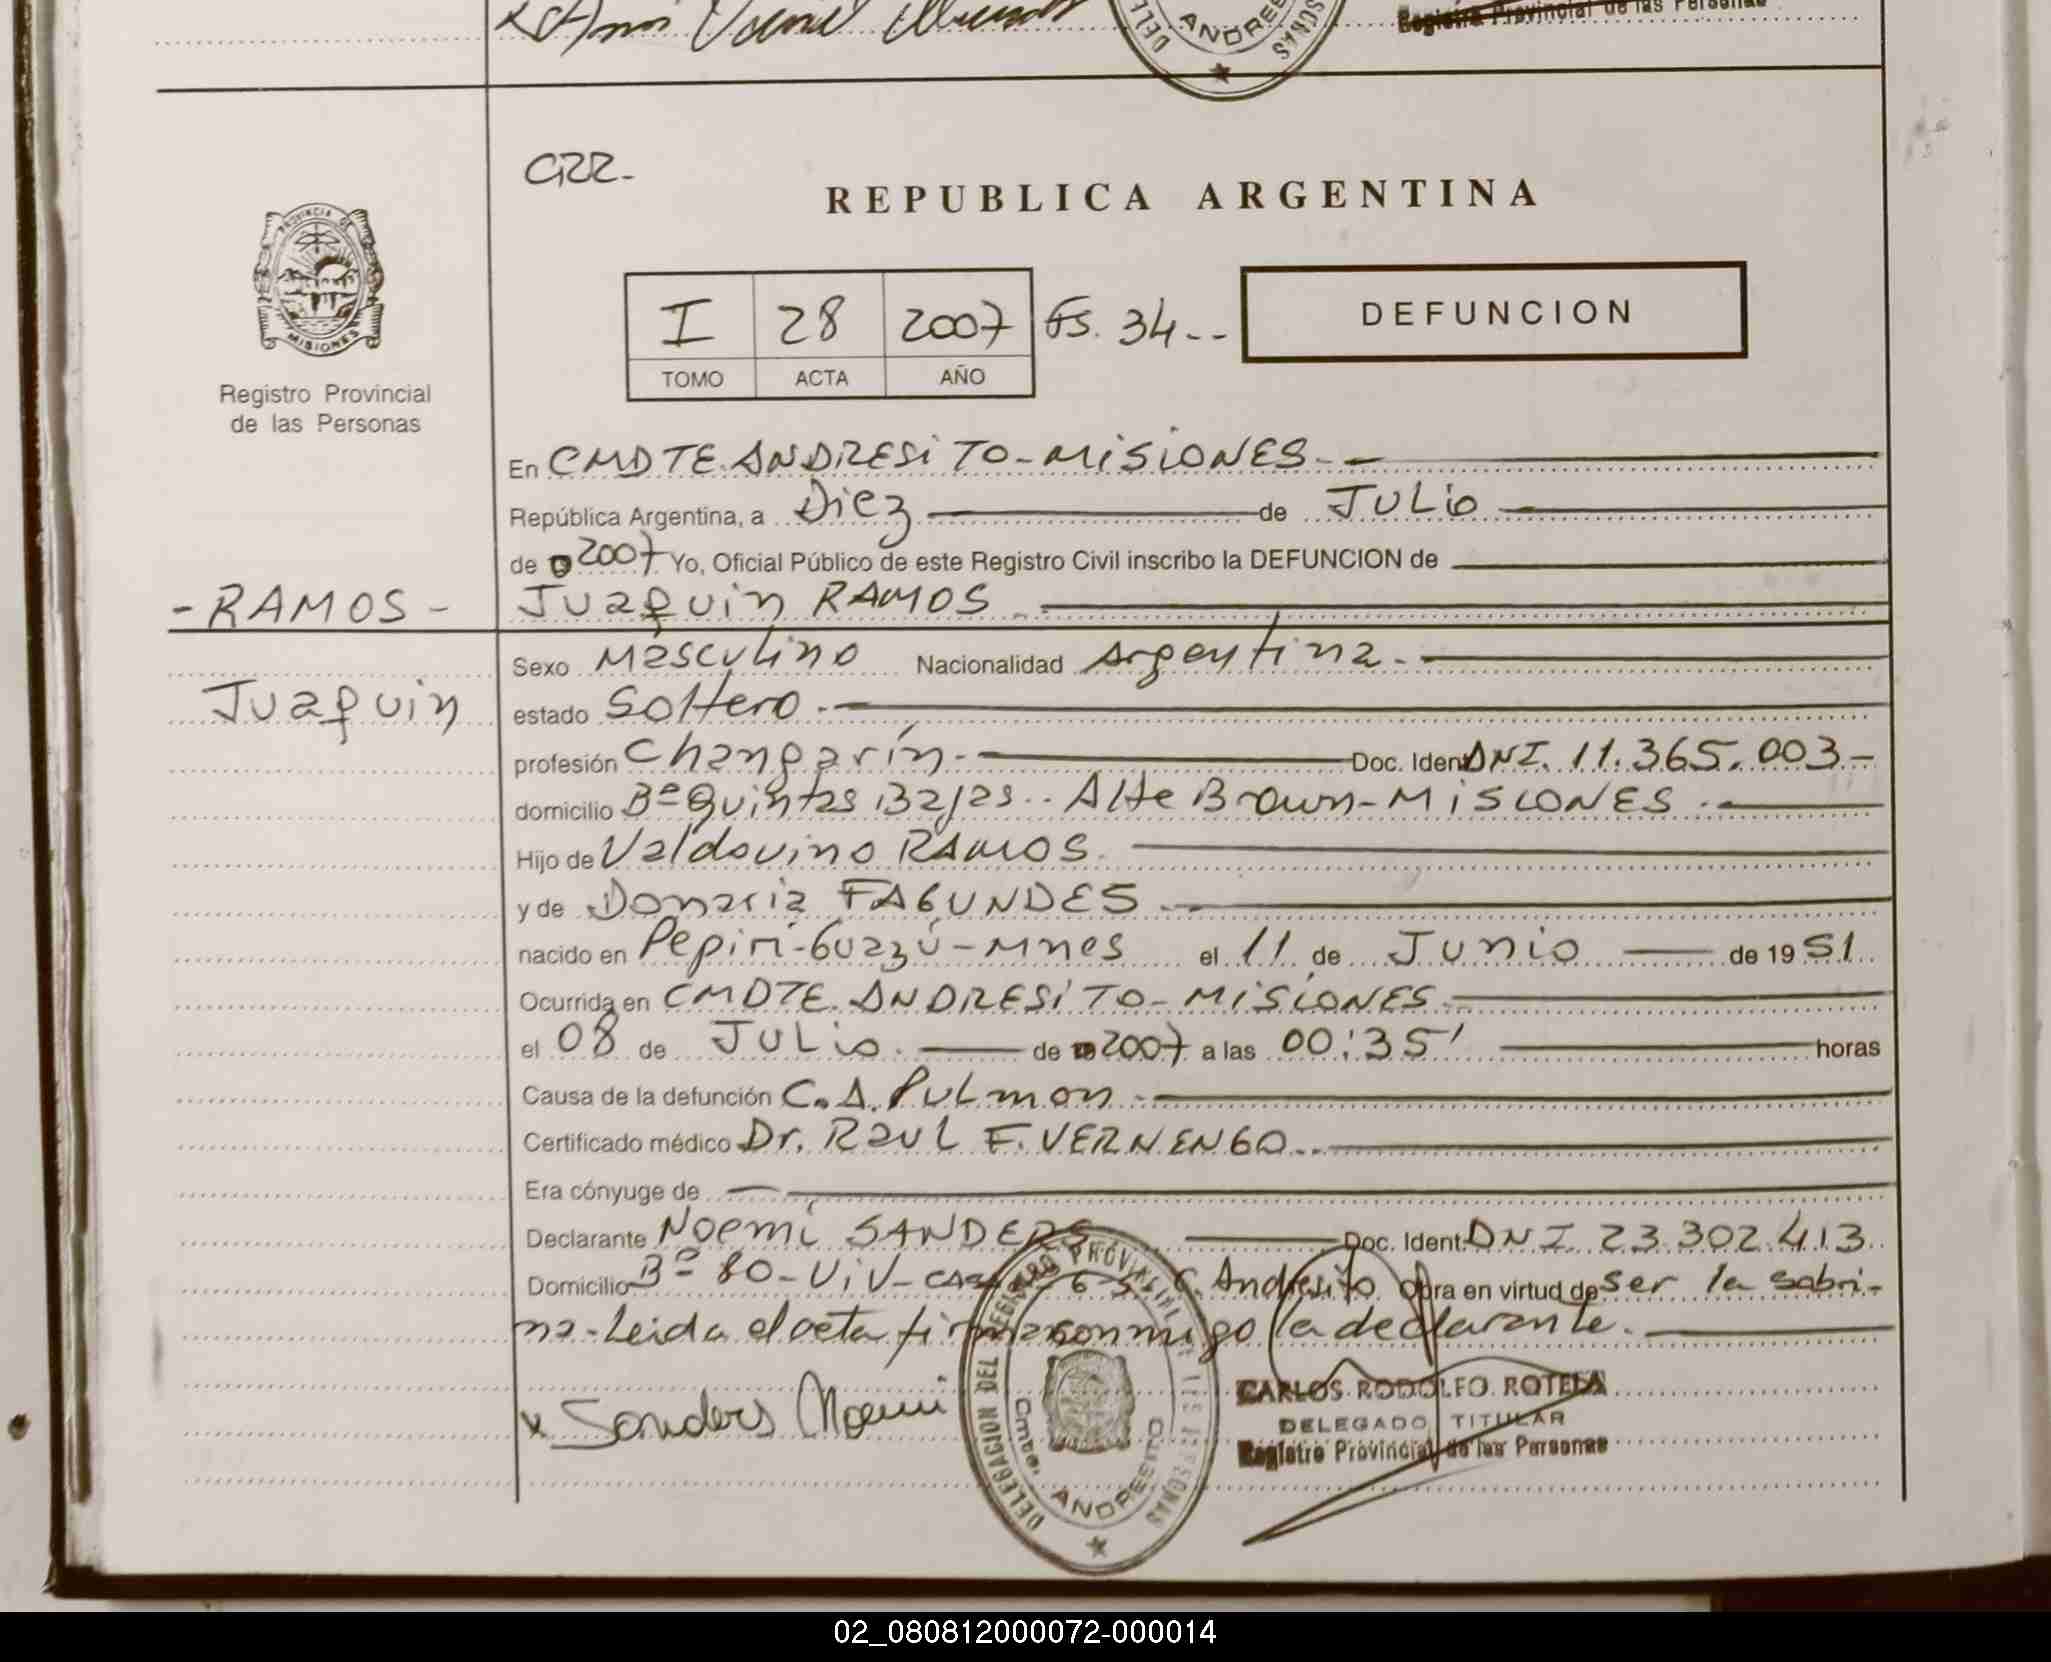 ANDRE
Registro Provincial de las Personas
CRR-
REPUBLICA ARGENTINA
PROVINCIA DE
MISIONES
I 28 2007 Fs. 34--
DEFUNCION
TOMO ACTA AÑO
Registro Provincial
de las Personas
En CMDTE. ANDRESITO-MISIONES.-
República Argentina, a Diez de JULio
de 2007 Yo, Oficial Público de este Registro Civil inscribo la DEFUNCION de
-RAMOS- Juaquin RAMOS.
Sexo Masculino Nacionalidad Argentina.-
Juaquin
estado Soltero.-
profesión Changarín.- Doc. Ident DNI. 11.365.003-
domicilio Bº Quintas Bajas.. Alte Brown-MISIONES.-
Hijo de Valdovino RAMOS.
y de Donaria FAGUNDES.-
nacido en Pepirí-Guazú-Mnes el 11 de Junio de 1951
Ocurrida en CMDTE. ANDRESITO-MISIONES.
el 08 de JULio. de 2007 a las 00:35' horas
Causa de la defunción C.A. PULmon.-
Certificado médico Dr. RauL F. VERNENGO..
Era cónyuge de
Declarante Noemí SANDERS Doc. Ident. DNI 23.302.413
Domicilio Bº 80-ViV- casa 65 C. Andresito Obra en virtud de ser la sobri-
na-Leida el acta firma conmigo la declarante.
x Sanders Noemi
DELEGACION DEL REGISTRO PROVINCIAL DE LAS PERSONAS
Cmte. ANDRESITO
CARLOS RODOLFO ROTELA
DELEGADO TITULAR
Registro Provincial de las Personas
02_080812000072-000014